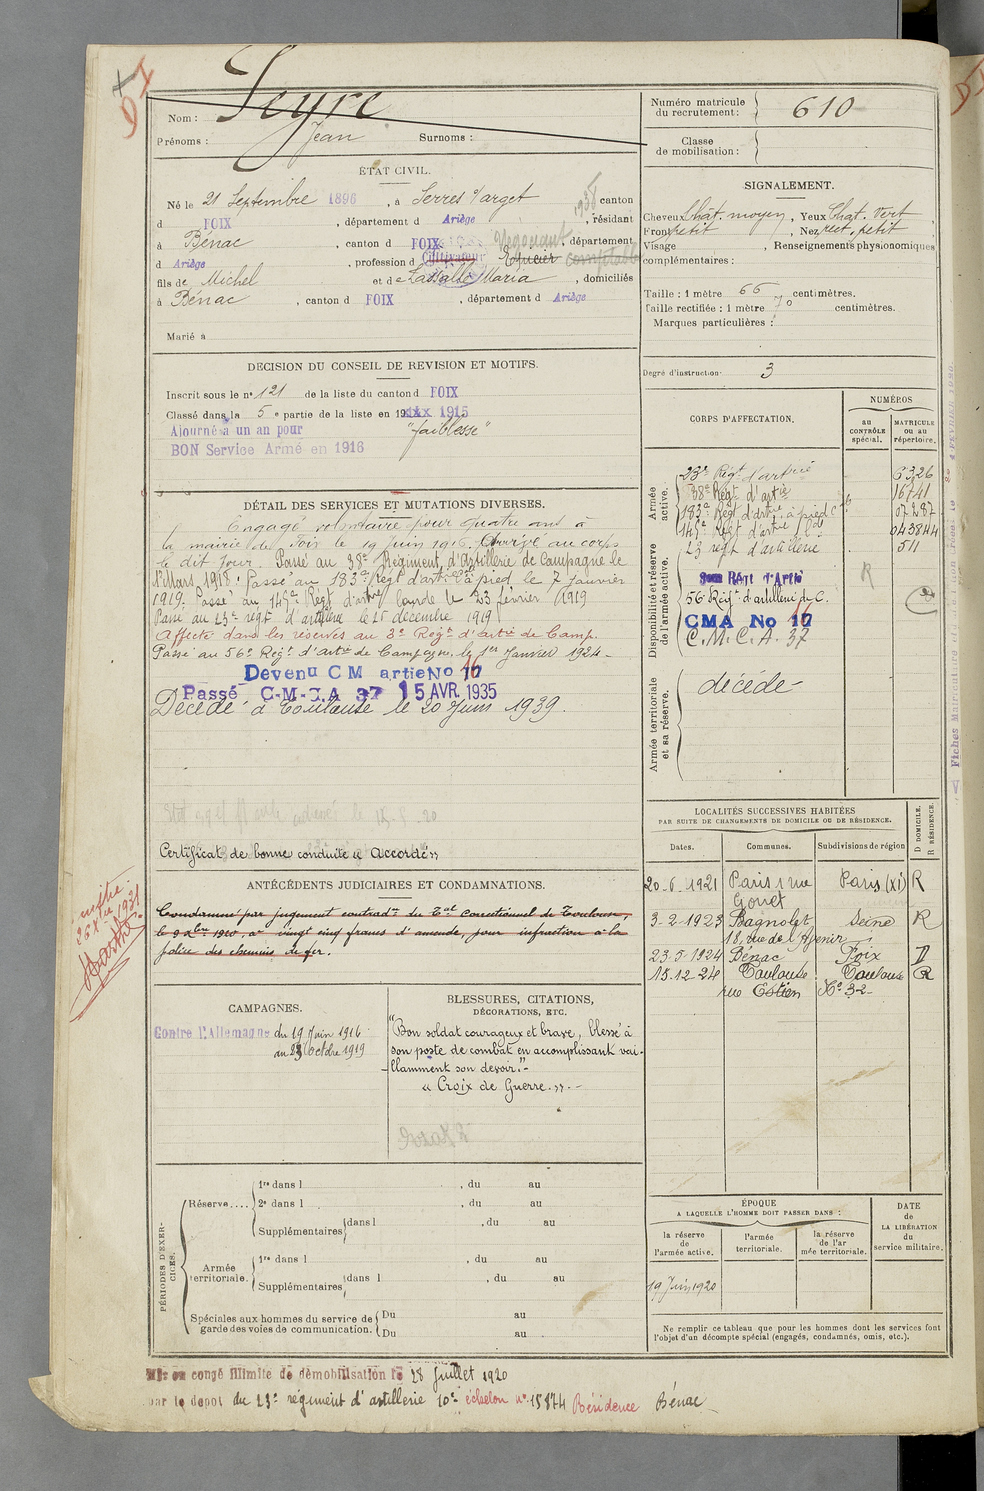 Nom : Seyre
Prénoms : Jean Surnoms :
ÉTAT CIVIL.
Né le 21 Septembre 1896, à Serres s/arget canton
d FOIX, département d Ariège, résidant
à Bénac, canton d FOIX, département
d Ariège, profession d Cultivateur Epicier comptable
fils de Michel et d Maria, domiciliés
à Bénac, canton d FOIX, département d Ariège
Marié à
DECISION DU CONSEIL DE REVISION ET MOTIFS.
Inscrit sous le n° 121 de la liste du canton d FOIX
Classé dans la 5e partie de la liste en 1915
Ajourné à un an pour "faiblesse"
BON Service Armé en 1916
DÉTAIL DES SERVICES ET MUTATIONS DIVERSES.
Engagé volontaire pour quatre ans à
la mairie de Foix le 19 Juin 1916. Arrivé au corps
le dit jour. Passé au 38e Régiment d'Artillerie de Campagne le
1er Mars 1918. Passé au 183e Régt d'artie à pied le 7 Janvier
1919. Passé au 147e Régt d'artie lourde le 23 février 1919
Passé au 23e régt d'artillerie le 25 décembre 1919
Affecté dans les réserves au 3e Régt d'artie de Camp.
Passé au 56e Régt d'artie de Campagne le 1er Janvier 1924 -
Devenu C M artie No 16
Passé C-M-I.A 37 15 AVR. 1935
Décédé à Toulouse le 20 Juin 1939.
Certificat de bonne conduite « Accordé »
ANTÉCÉDENTS JUDICIAIRES ET CONDAMNATIONS.
Condamné par jugement contradre du Tal correctionnel de Toulouse,
le 9 Xbre 1920, à vingt cinq francs d'amende, pour infraction à la
police des chemins de fer.
CAMPAGNES.
Contre l'Allemagne du 19 Juin 1916
au 23 Octobre 1919
BLESSURES, CITATIONS,
DÉCORATIONS, ETC.
"Bon soldat courageux et brave, blessé à
son poste de combat en accomplissant vai-
llamment son devoir." -
« Croix de Guerre. » -
PÉRIODES D'EXERCICES.
Réserve....
1re dans l , du au
2e dans l , du au
Supplémentaires dans l , du au
Armée
territoriale.
1re dans l , du au
Supplémentaires dans l , du au
Spéciales aux hommes du service de
garde des voies de communication.
Du au
Du au
Mis en congé illimité de démobilisation le 28 Juillet 1920
par le dépot du 23e régiment d'artillerie 10e échelon n° 15874 Résidence Bénac
Numéro matricule
du recrutement : 610
Classe
de mobilisation :
SIGNALEMENT.
Cheveux Chât. moyen, Yeux Chat. vert
Front petit, Nez rect. petit,
Visage , Renseignements physionomiques
complémentaires :
Taille : 1 mètre 66 centimètres.
Taille rectifiée : 1 mètre 70 centimètres.
Marques particulières :
Degré d'instruction 3
CORPS D'AFFECTATION.
NUMÉROS
au
CONTRÔLE
spécial.
MATRICULE
ou au
répertoire.
Armée
active.
23e Régt d'artie 6326
38e Régt d'artie 16741
183e Régt d'artie à pied 07287
147e Régt d'artie lde 043844
23 régt d'artillerie 511
Disponibilité et réserve
de l'armée active.
Régt d'Artie
56e Régt d'artillerie de C.
R
CMA No 16
C.M.C.A. 37
Armée territoriale
et sa réserve.
décédé -
LOCALITÉS SUCCESSIVES HABITÉES
PAR SUITE DE CHANGEMENTS DE DOMICILE OU DE RÉSIDENCE.
D DOMICILE.
R RÉSIDENCE.
Dates. Communes. Subdivisions de région
20-6-1921 Paris 1 rue Paris (XI) R
3-2-1923 Bagnolet Seine R
18, rue de l'Avenir
23-5-1924 Bénac Foix D
15.12-24 Toulouse Toulouse R
rue No 32
ÉPOQUE
A LAQUELLE L'HOMME DOIT PASSER DANS :
la réserve
de
l'armée active.
l'armée
territoriale.
la réserve
de l'ar
mée territoriale.
DATE
de
LA LIBÉRATION
du
service militaire.
19 Juin 1920
Ne remplir ce tableau que pour les hommes dont les services font
l'objet d'un décompte spécial (engagés, condamnés, omis, etc.).